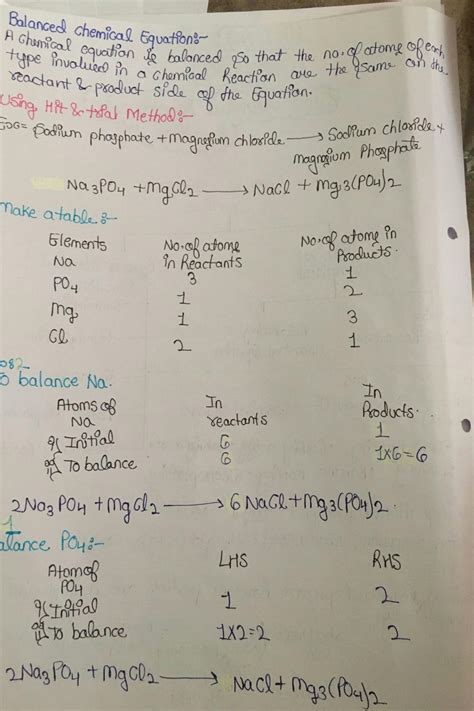 Balanced Chemical Equation:-
A chemical equation is balanced so that the no. of atoms of each
type involved in a chemical Reaction are the same on the
reactant & product side of the Equation.
Using Hit & trial Method:-
Sodium phosphate + Magnesium chloride → Sodium chloride +
Magnesium Phosphate
Na3PO4 + MgCl2 → NaCl + Mg3(PO4)2
Make a table:-
Elements No. of atoms in Reactants No. of atoms in Products.
Na 3 1
PO4 1 2
Mg 1 3
Cl 2 1
o balance Na.
Atoms of Na In reactants In Products.
i) Initial 6 1
ii) To balance 6 1x6=6
2Na3PO4 + MgCl2 → 6NaCl + Mg3(PO4)2.
alance PO4:-
Atom of PO4 LHS RHS
i) Initial 1 2
ii) To balance 1x2=2 2
2Na3PO4 + MgCl2 → NaCl + Mg3(PO4)2